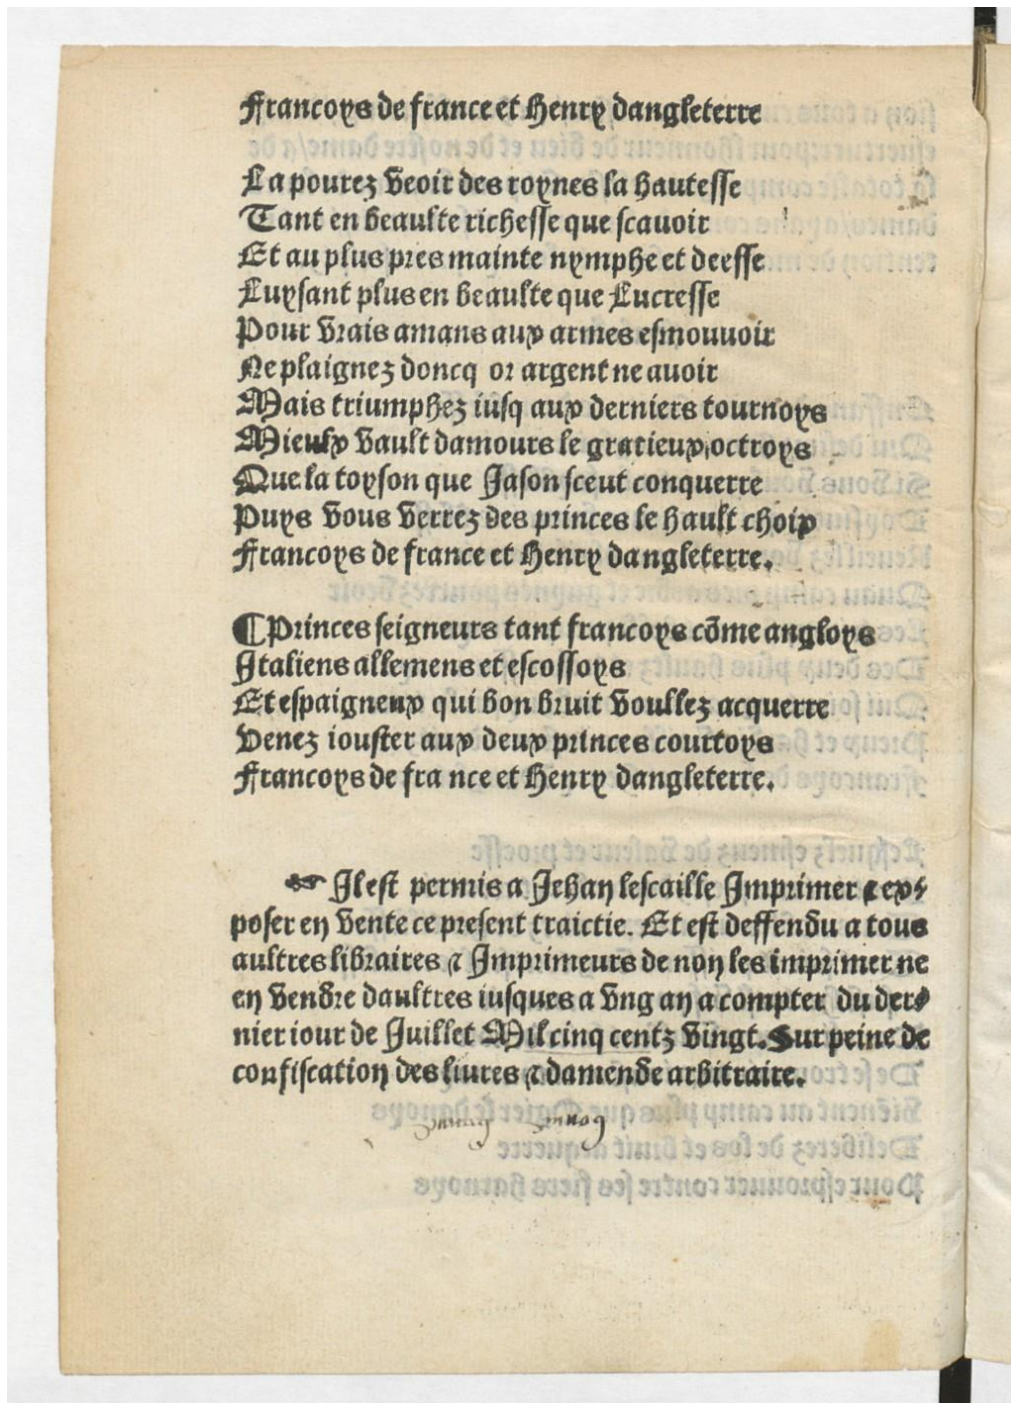 Francoys de france et Henry dangleterre
La pourez veoir des roynes la hautesse
Tant en beaulte richesse que scavoir
Et au plus pres mainte nymphe et deesse
Luysant plus en beaulte que Lucresse
Pour vrais amans aux armes esmouvoir
Ne plaignez doncq or argent ne avoir
Mais triumphez iusq aux derniers tournoys
Mieulx vault damours le gratieux octroys
Que la toyson que Jason sceut conquerre
Puys vous verrez des princes le hault choix
Francoys de france et Henry dangleterre.
¶Princes seigneurs tant francoys cõme angloys
Italiens allemens et escossoys
Et espaigneux qui bon bruit voullez acquerre
Venez iouster aux deux princes courtoys
Francoys de fra nce et Henry dangleterre.
☞ Il est permis a Jehan lescaille Imprimer ⁊ ex⸗
poser en vente ce present traictie. Et est deffendu a tous
aultres libraires ⁊ Imprimeurs de non les imprimer ne
en vendre daultres iusques a vng an a compter du der⸗
nier iour de Juillet Mil cinq centz vingt. Sur peine de
confiscation des liures ⁊ damende arbitraire.